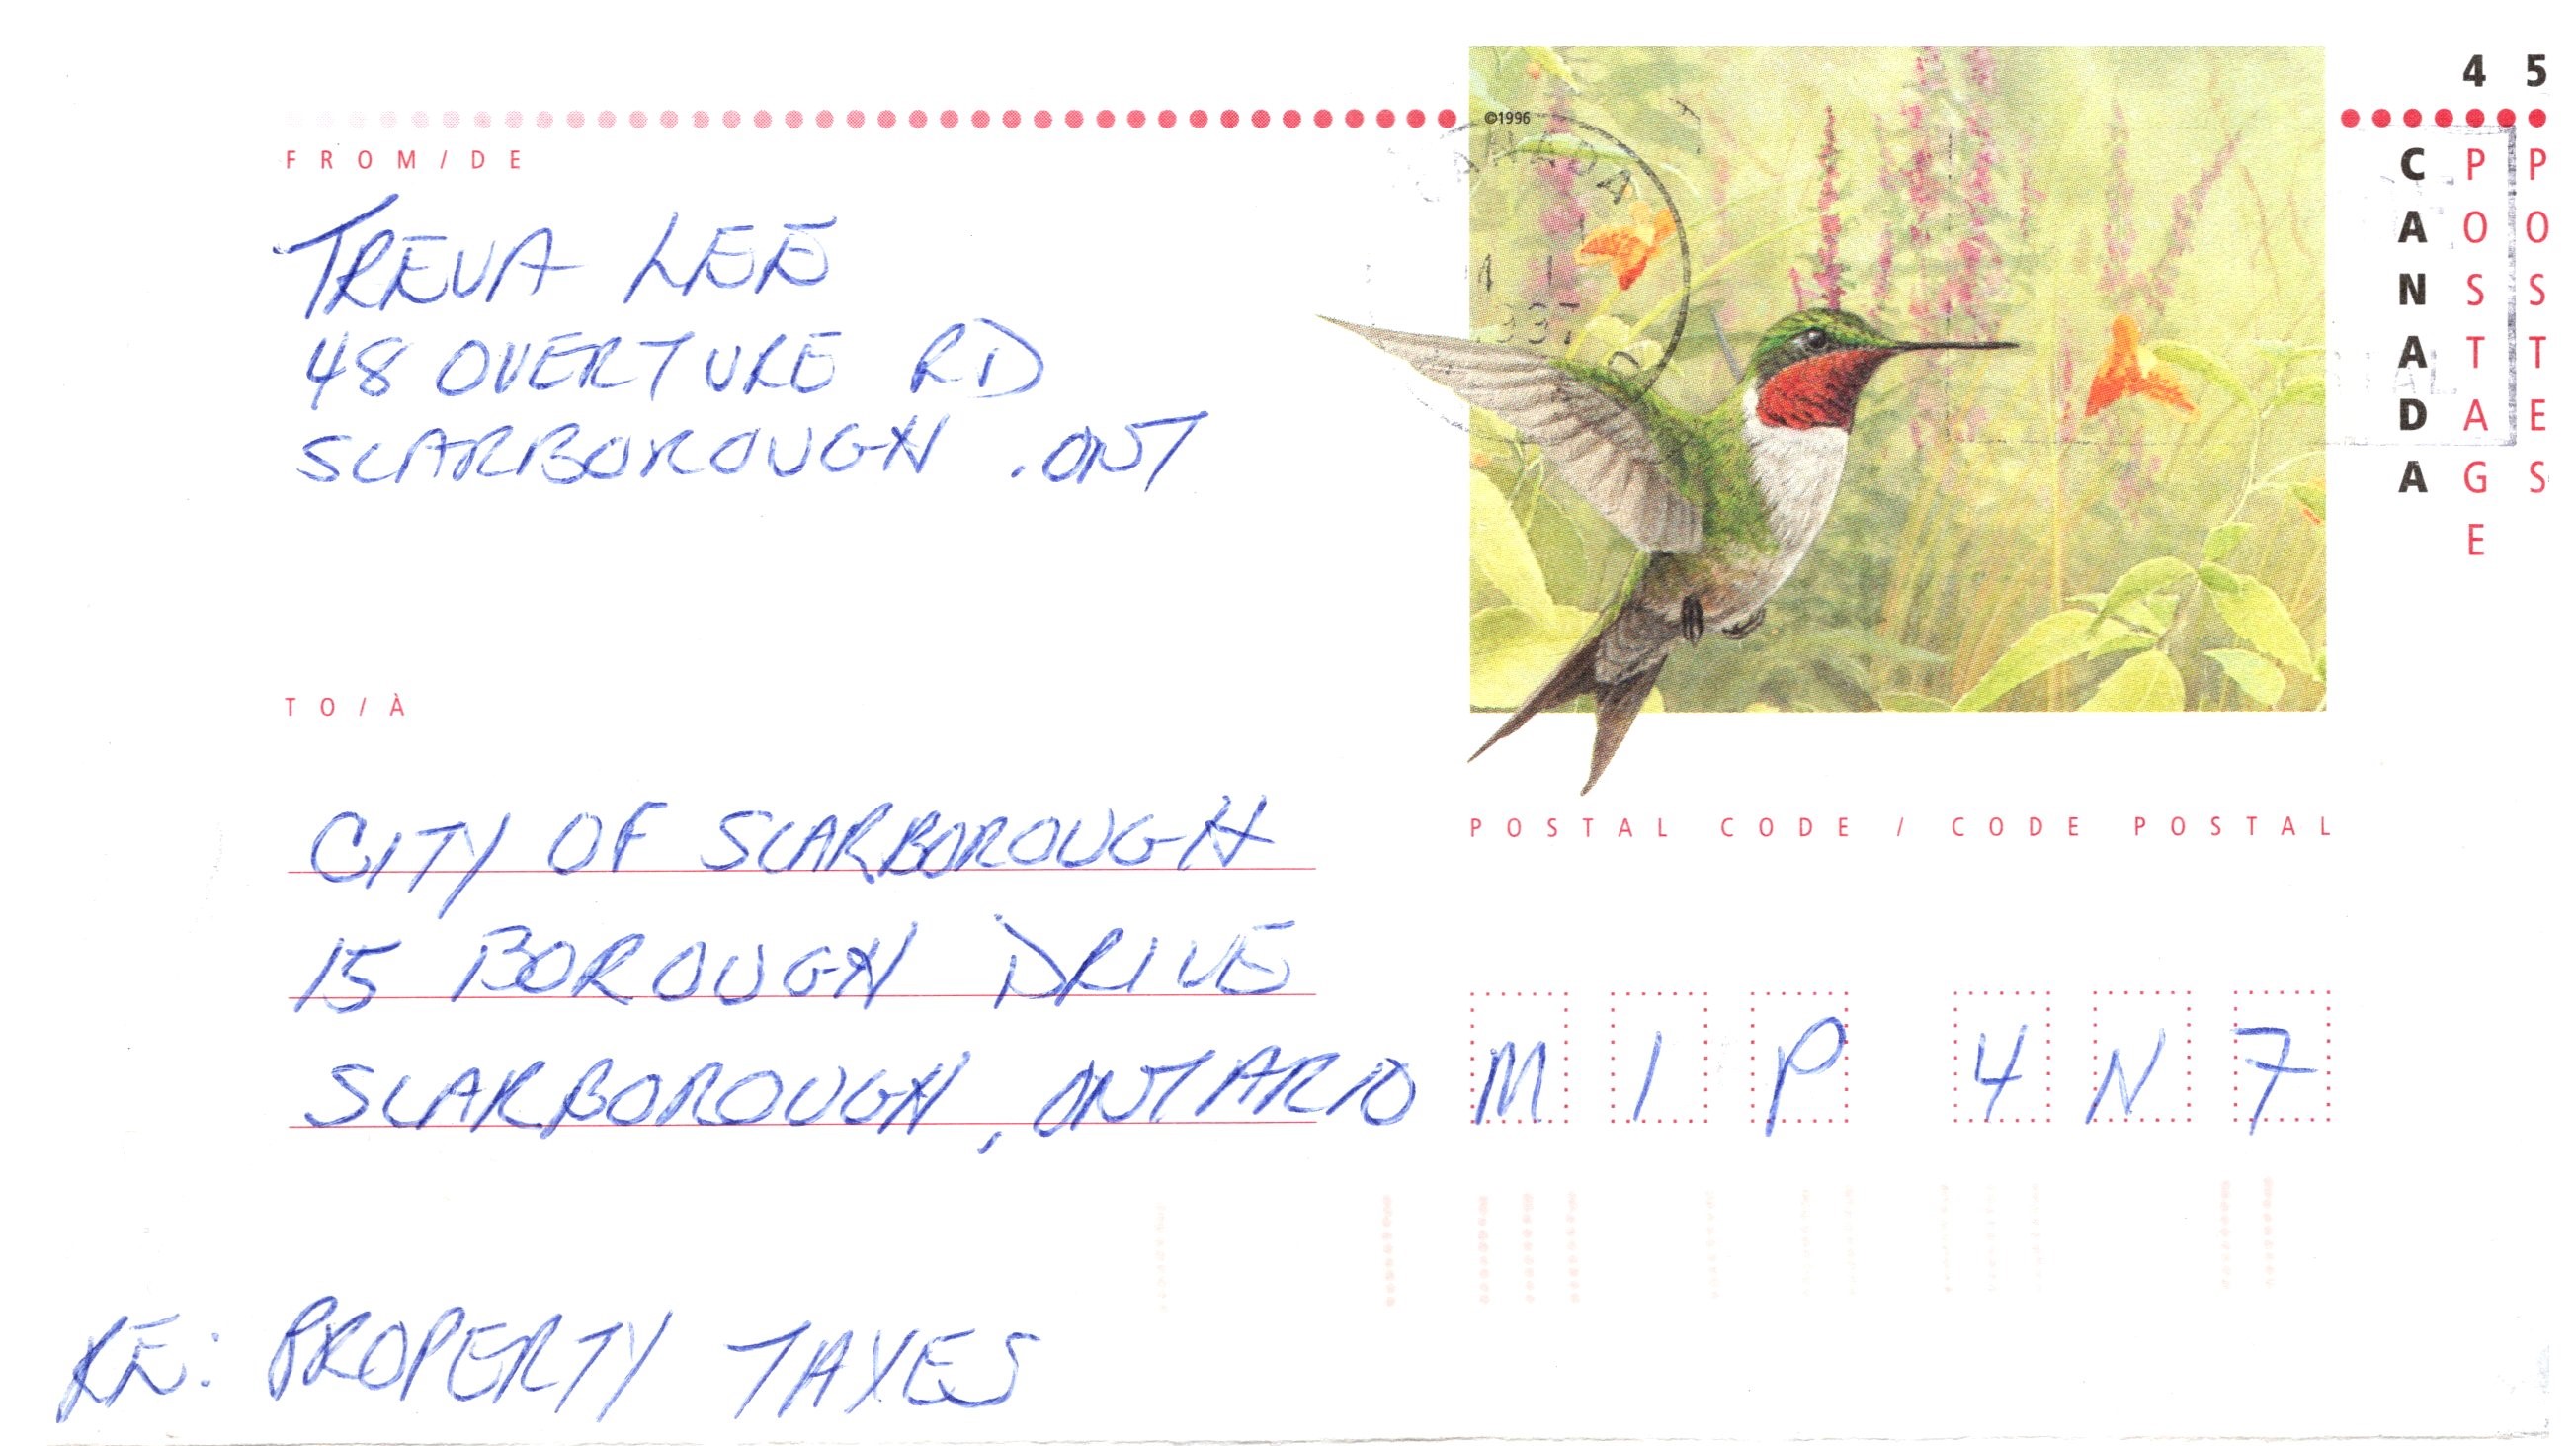 4 5
©1996
FROM/DE
CANADA
POSTAGE
POSTES
CANADA
TREVA LEE
48 OVERTURE RD
SCARBOROUGH . ONT
1997
TO/À
POSTAL CODE / CODE POSTAL
CITY OF SCARBOROUGH
15 BOROUGH DRIVE
SCARBOROUGH, ONTARIO M 1 P 4 N 7
RE: PROPERTY TAXES